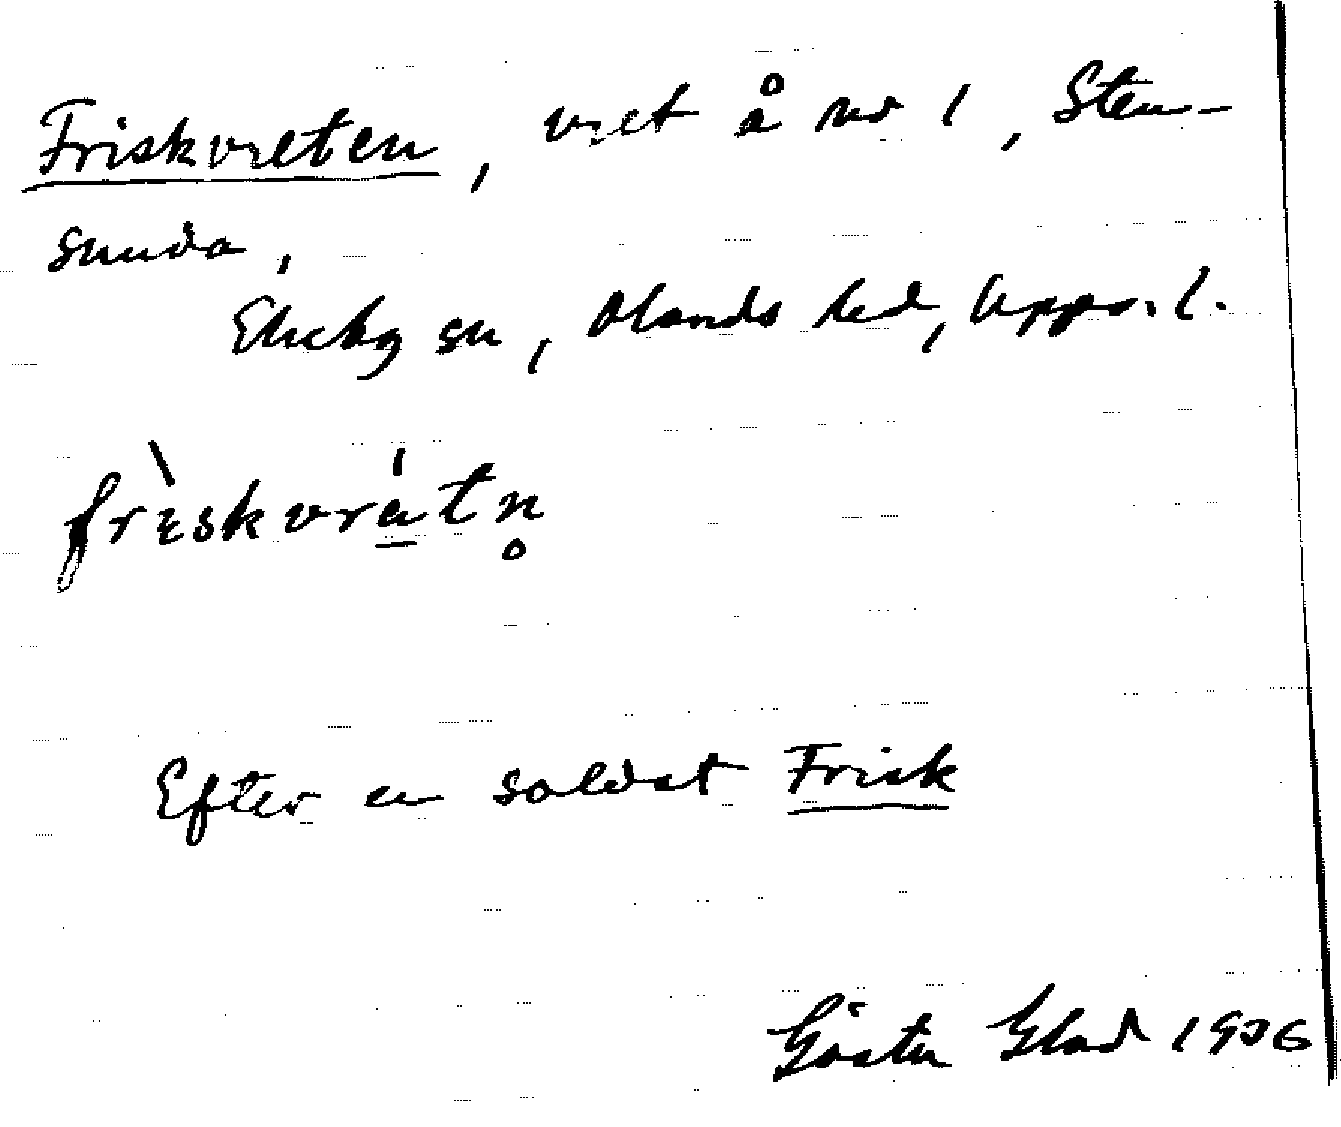 Friskvreten, vret å nr 1, Sten-
sunda,
Ekeby sn, Olands hd, Upps. l.
frìskvrátn̥
Efter en soldat Frisk
Gösta Glad 1906